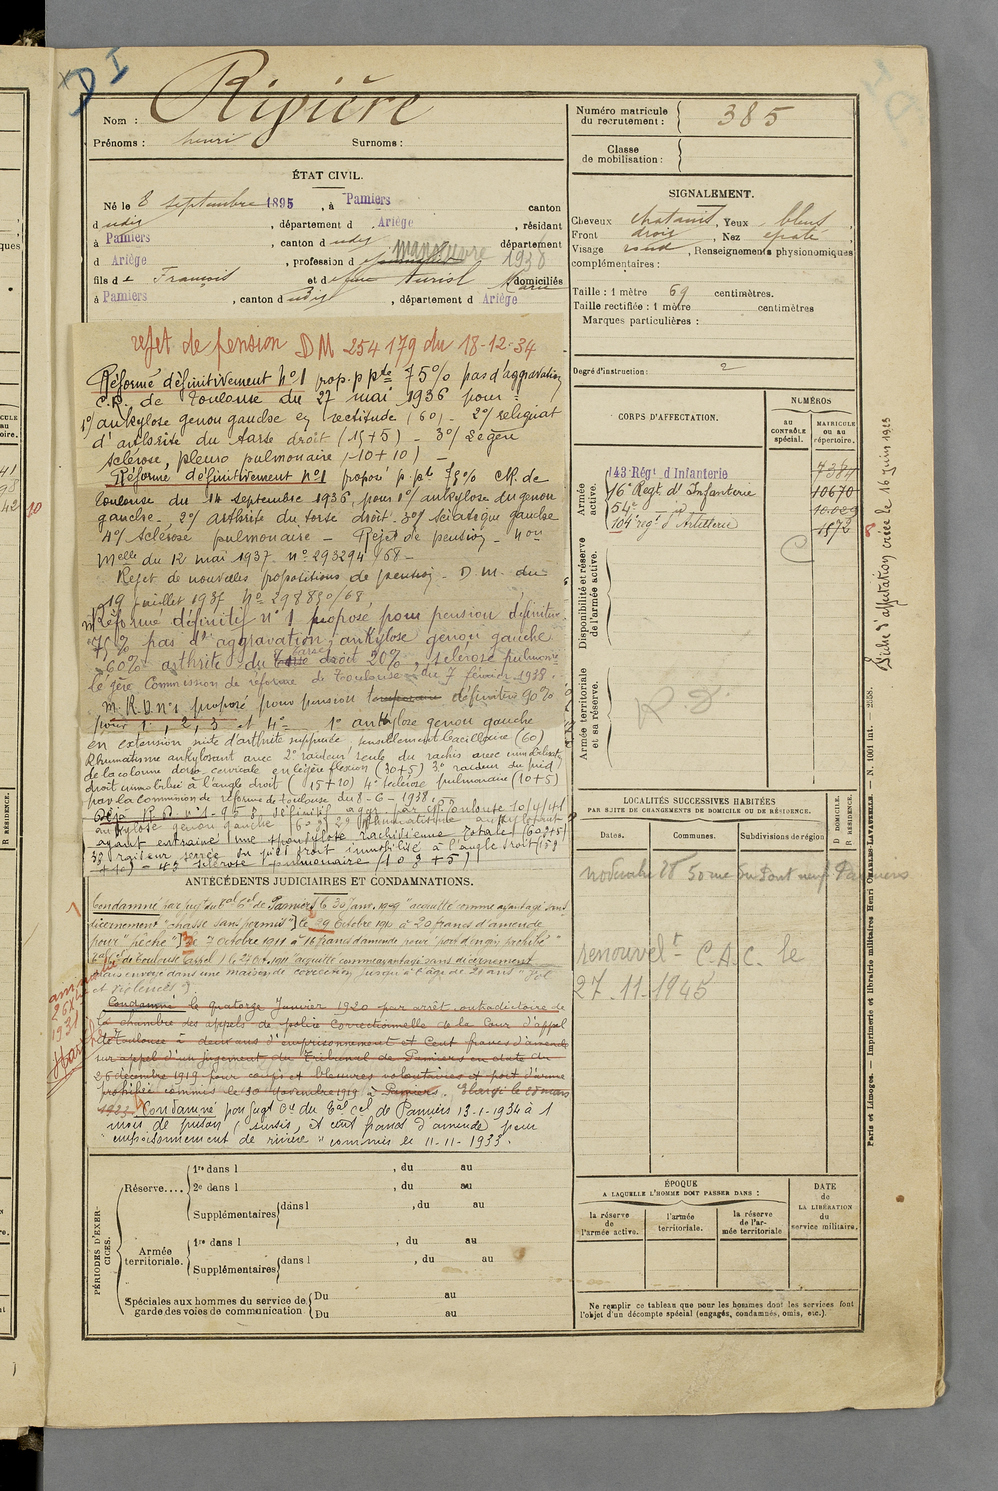 D I
Nom : Rivière
Prénoms : henri Surnoms :
ÉTAT CIVIL.
Né le 8 septembre 1895, à Pamiers canton
d udis, département d Ariège, résidant
à Pamiers, canton d udis département
d Ariège, profession d manœuvre 1938
fils de François et de domiciliés
à Pamiers, canton d udis, département d Ariège
Marie
rejet de pension DM 254179 du 18-12-34
Réformé définitivement n°1 prop. p pte 75% pas d'aggravation
C.R. de Toulouse du 27 mai 1936 pour :
1° ankylose genou gauche en rectitude (60) - 2° reliquat
d'arthrite du tarse droit (15+5) - 3° légère
sclérose, pleuro pulmonaire (10+10) -
Réformé définitivement n°1 proposé p. pte 75% C.R. de
Toulouse du 14 septembre 1936, pour 1° ankylose du genou
gauche - 2° arthrite du tarse droit. 3° sciatique gauche
4° sclérose pulmonaire - Rejet de pension - Non
Melle du 12 mai 1937. n° 293294/68 -
Rejet de nouvelles propositions de pension - D.M. du
19 juillet 1937 n° 298830/68
Réforme définitif n°1 proposé pour pension définitive
75% pas d'aggravation, ankylose genou gauche
60% arthrite du tarse droit 20%, sclérose pulmonaire
légère Commission de réforme de Toulouse du 7 février 1938.
M.R.D. n°1 proposé pour pension définitive 90%
pour 1°, 2, 3 et 4° 1° ankylose genou gauche
en extension suite d'arthrite suppurée, sensiblement bacillaire (60)
Rhumatisme ankylosant avec 2° raideur seule du rachis avec immobilisation
de la colonne dorso cervicale en légère flexion (30+5) 3° raideur du pied
droit immobilisé à l'angle droit (15+10) 4° sclérose pulmonaire (10+5)
par la commission de réforme de Toulouse du 8-6-1938.
Déjà R.D. n°1 - 95% définitif aggr. par CR Toulouse 10/4/41
ankylose genou gauche 60% 2° Rhumatisme ankylosant
ayant entraîné une spondylose rachidienne totale (60+5)
3° raideur serrée du pied droit immobilisé à l'angle droit (15
+10) - 4° sclérose pulmonaire (10+5)
ANTÉCÉDENTS JUDICIAIRES ET CONDAMNATIONS.
Condamné par jugt du tal cel de Pamiers le 30 janv. 1909 "acquitté comme ayant agi sans
discernement" "chasse sans permis" le 29 octobre 1910 à 20 francs d'amende
pour "pêche" le 7 octobre 1911 à 16 francs d'amende pour "port d'engin prohibé"
de Toulouse (appel) le 27 Oct. 1911 "acquitté comme ayant agi sans discernement
mais envoyé dans une maison de correction jusqu'à l'âge de 21 ans"
et violences).
Condamné le quatorze Janvier 1920 par arrêt contradictoire de
la chambre des appels de police Correctionnelle de la Cour d'appel
de Toulouse à deux ans d'emprisonnement et Cent francs d'amende
sur appel d'un jugement du Tribunal de Pamiers en date du
26 décembre 1919 pour coups et blessures volontaires et port d'arme
prohibée commis le 30 novembre 1919 à Pamiers. Elargi le 28 mars
1921. Condamné par jugt Ce du tal cel de Pamiers 13-1-1934 à 1
mois de prison (sursis, et cent francs d'amende pour
"empoisonnement de rivière" commis le 11-11-1933.
amnistie
1931
PÉRIODES D'EXERCICES.
Réserve.... 1re dans l , du au
2e dans l , du au
Supplémentaires dans l , du au
Armée territoriale. 1re dans l , du au
Supplémentaires dans l , du au
Spéciales aux hommes du service de garde des voies de communication Du au
Du au
Numéro matricule du recrutement : 385
Classe de mobilisation :
SIGNALEMENT.
Cheveux chatains, Yeux bleus,
Front droit, Nez épaté,
Visage rond, Renseignements physionomiques
complémentaires :
Taille : 1 mètre 69 centimètres.
Taille rectifiée : 1 mètre centimètres
Marques particulières :
Degré d'instruction : 2
CORPS D'AFFECTATION.
NUMÉROS
AU CONTRÔLE spécial.
MATRICULE ou au répertoire.
Armée active.
143 Régt d'Infanterie 7384
16e Regt d'Infanterie 10670
54e
104e regt d'Artillerie 1572
C
Disponibilité et réserve de l'armée active.
Armée territoriale et sa réserve.
Fiche d'affectation créée le 16 juin 1923
LOCALITÉS SUCCESSIVES HABITÉES
PAR SUITE DE CHANGEMENTS DE DOMICILE OU DE RÉSIDENCE.
Dates. Communes. Subdivisions de région D DOMICILE. R RÉSIDENCE.
28 50 rue du Pont neuf Pamiers
renouvelt - C.A.C. le
27.11.1945
ÉPOQUE
A LAQUELLE L'HOMME DOIT PASSER DANS :
la réserve de l'armée active.
l'armée territoriale.
la réserve de l'armée territoriale
DATE de LA LIBÉRATION du service militaire.
Ne remplir ce tableau que pour les hommes dont les services font
l'objet d'un décompte spécial (engagés, condamnés, omis, etc.).
Paris et Limoges. — Imprimerie et librairie militaires Henri CHARLES-LAVAUZELLE — N. 1001 int. — 2558.